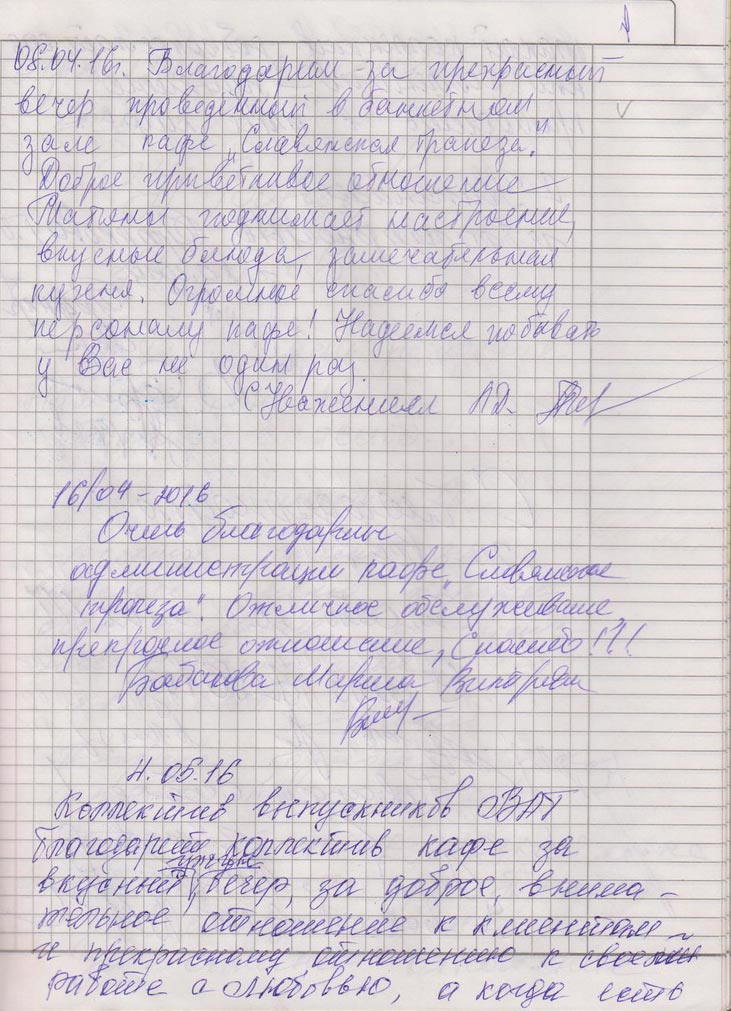 08.04.16г. Благодарим за прекрасный
вечер проведенный в банкетном
зале кафе „Славянская трапеза."
Доброе приветливое отношение
Татьяны поднимает настроение,
вкусные блюда, замечательная
кухня. Огромное спасибо всему
персоналу кафе! Надеемся побывать
у Вас не один раз.
С Уважением
16/04-2016
Очень благодарны
администрации кафе „Славянская
трапеза". Отличное обслуживание,
прекрасное отношение, Спасибо!!!
Марина Викторовна
4.05.16
Коллектив выпускников
благодарит коллектив кафе за
вкусный ужин, вечер, за доброе, внима-
тельное отношение к клиентам
и прекрасному отношению к своей
работе с любовью, а когда есть